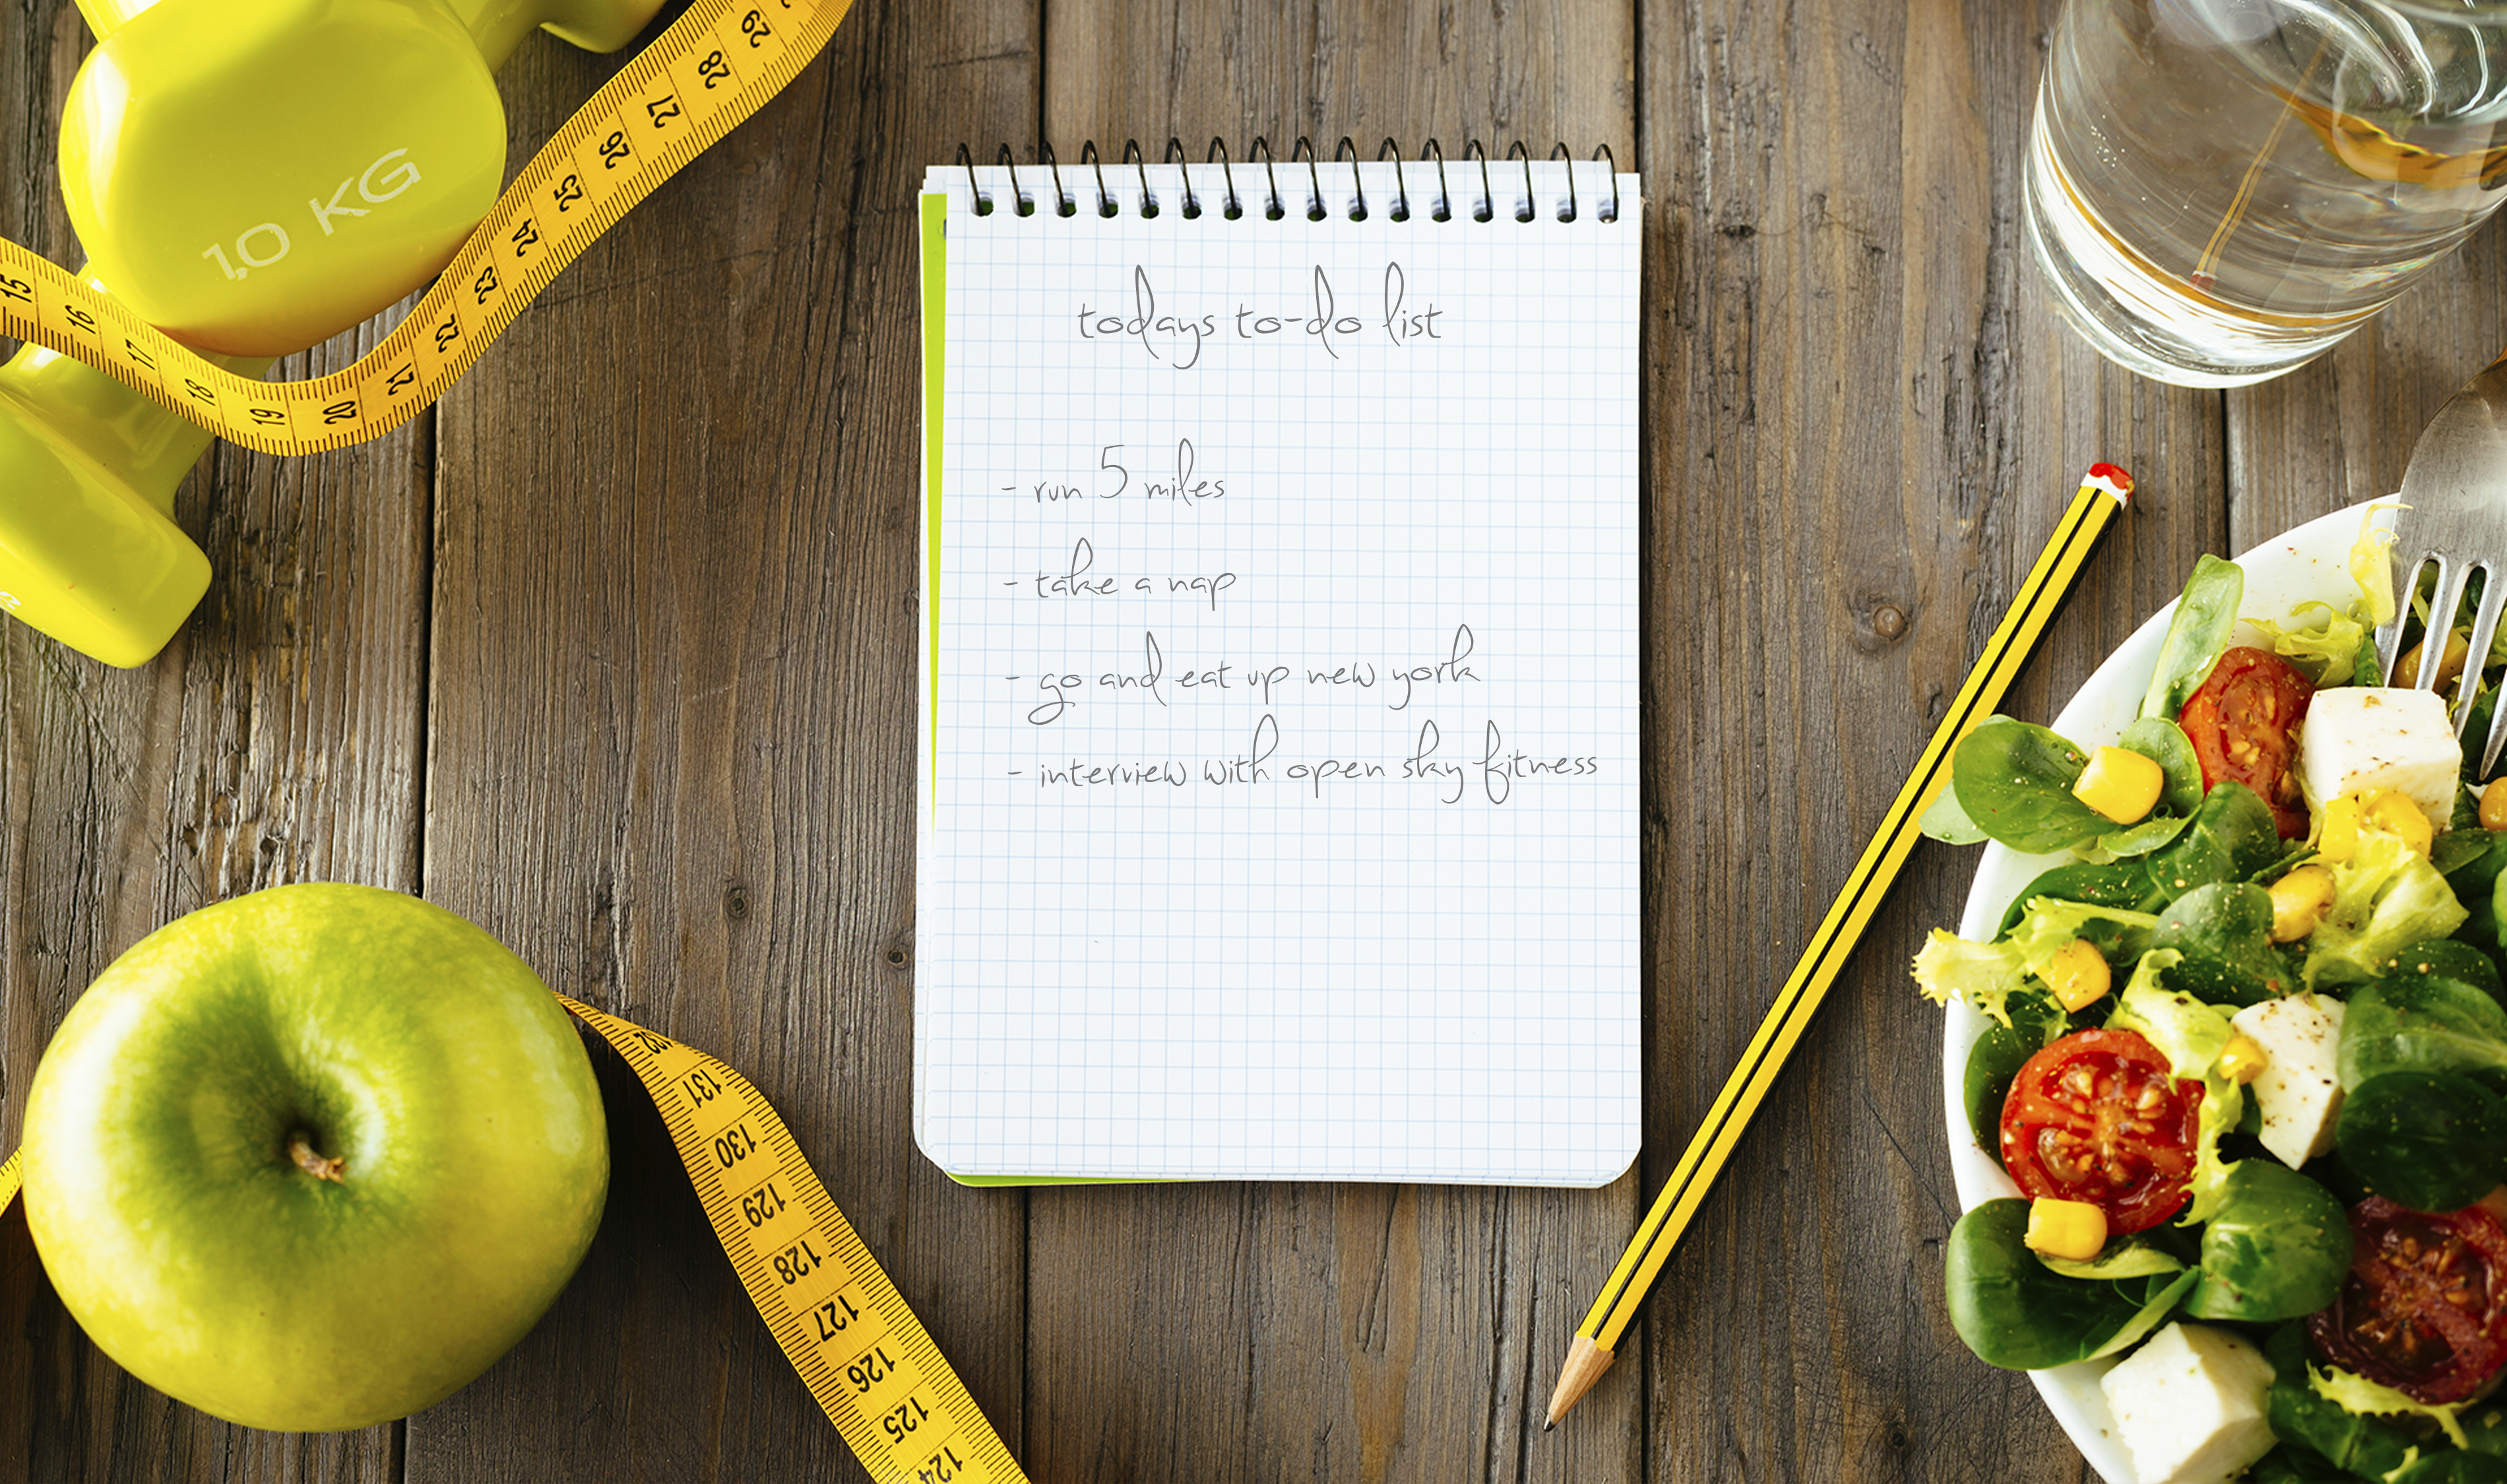 29
28
27
26
25
24
23
22
21
20
19
18
17
16
15
1,0 KG
todays to-do list
- run 5 miles
- take a nap
- go and eat up new york
- interview with open sky fitness
132
131
130
129
128
127
126
125
124